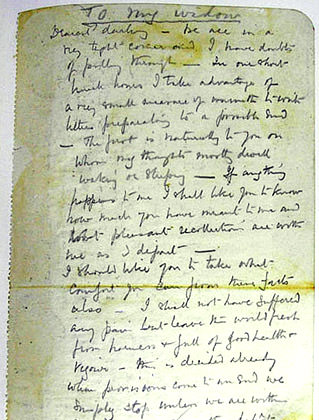 To my widow
Dearest darling – we are in a
very tight corner and I have doubts
of pulling through – In our short
lunch hours I take advantage of
a very small measure of warmth to write
letters preparatory to a possible end
– The first is naturally to you on
whom my thoughts mostly dwell
waking or sleeping – If anything
happens to me I shall like you to know
how much you have meant to me and
that pleasant recollections are with
me as I depart –
I should like you to take what
comfort you can from these facts
also – I shall not have suffered
any pain but leave the world fresh
from harness & full of good health &
vigour – this is decided already
when provisions come to an end we
simply stop unless we are within